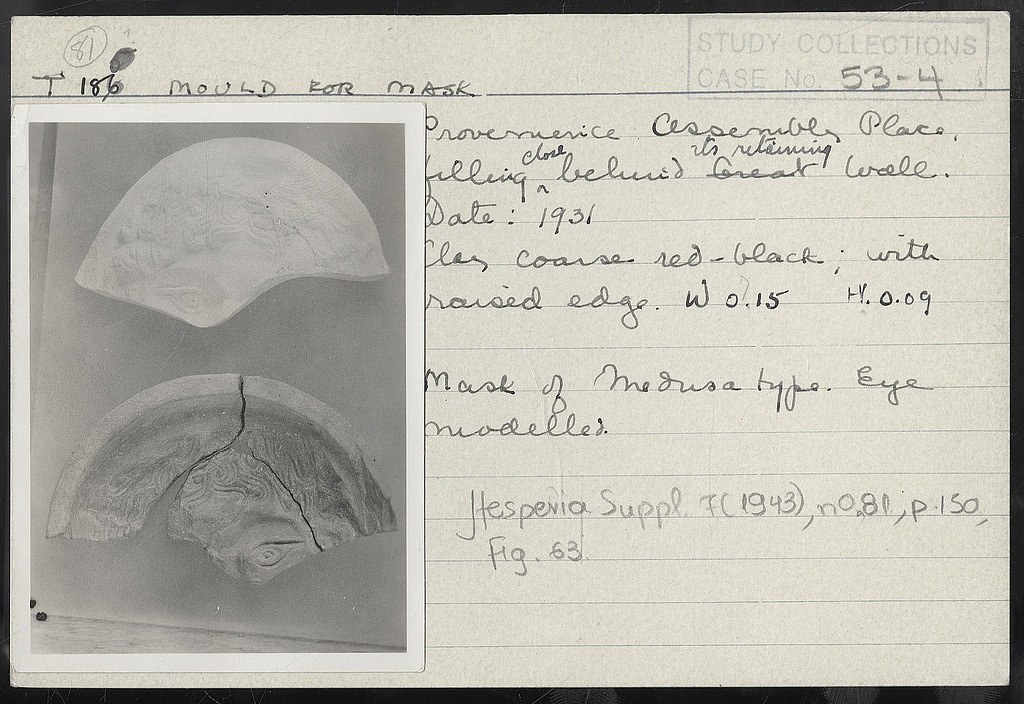 81
STUDY COLLECTIONS
CASE No. 53-4
T 186 MOULD FOR MASK
Provenience Assembly Place,
filling close behind its retaining Great Wall.
Date: 1931
Clay coarse red-black; with
raised edge. W 0.15 H. 0.09
Mask of Medusa type. Eye
modelled.
Hesperia Suppl. 7(1943), no.81, p.150,
Fig. 63.